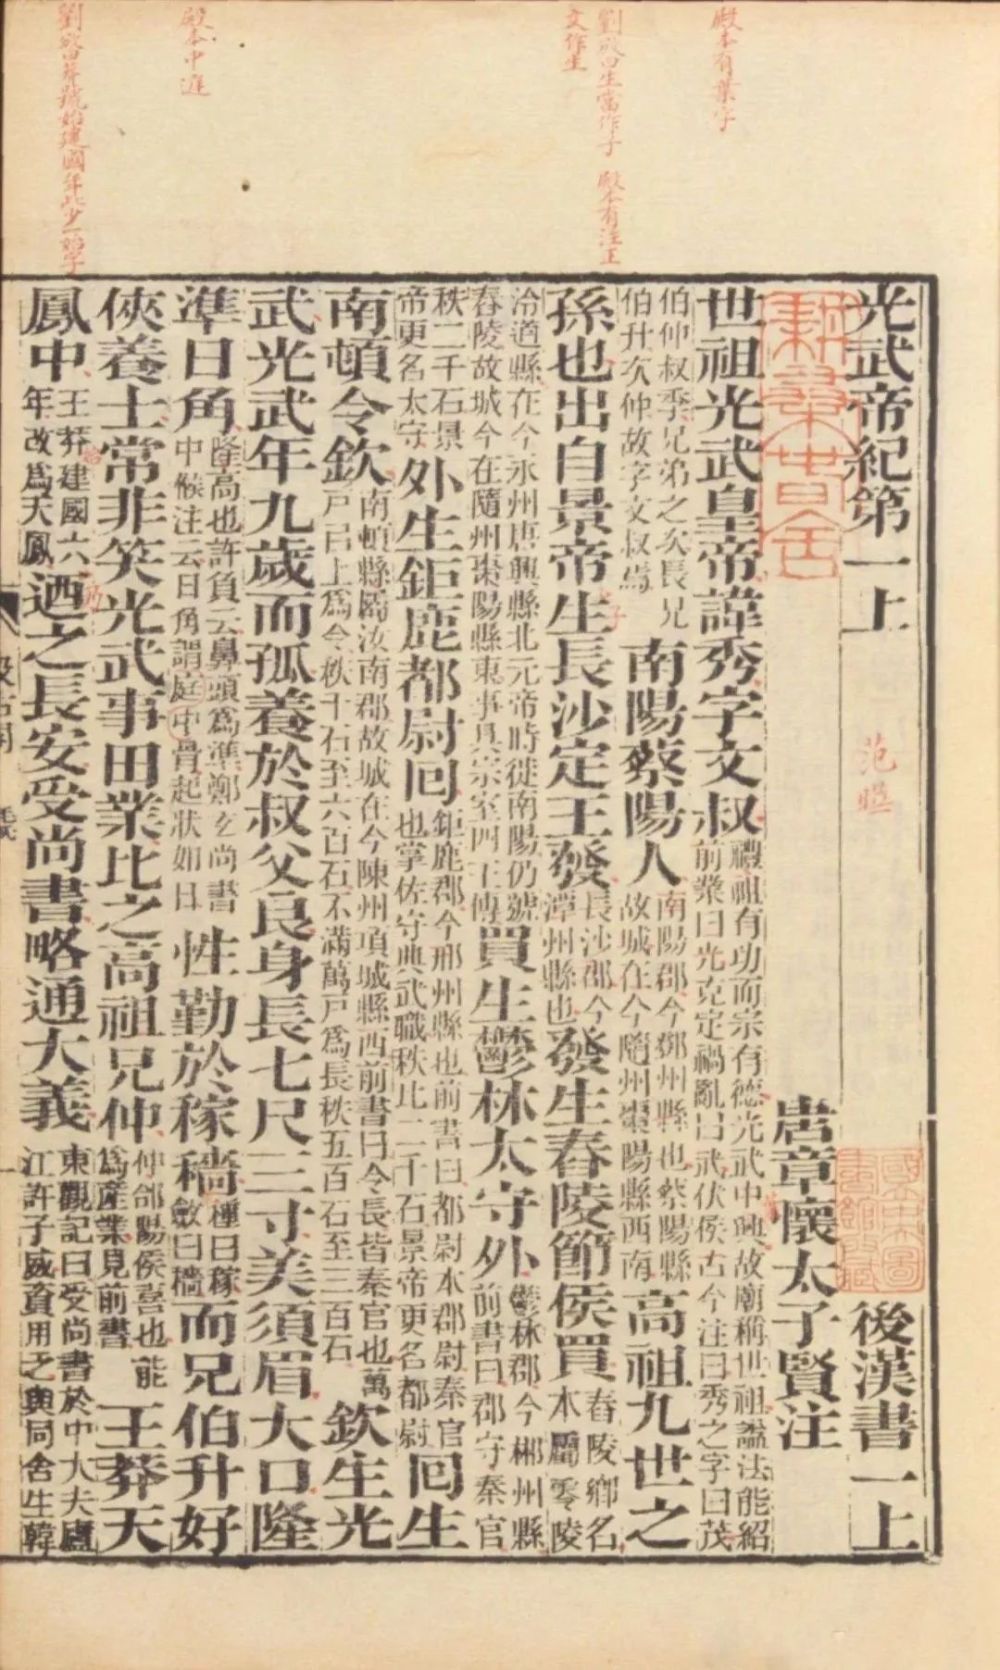 殿本有葉字
劉攽曰生當作子　殿本有注正
文作生
殿本中庭
劉攽曰莽號始建國年此少一始字
光武帝紀第一上　范曄　後漢書一上
唐章懷太子賢注
世祖光武皇帝諱秀字文叔禮祖有功而宗有德光武中興故廟稱世祖諡法能紹前業曰光克定禍亂曰武伏侯古今注曰秀之字曰茂
伯仲叔季兄弟之次長兄伯升次仲故字文叔焉南陽蔡陽人南陽郡今鄧州縣也蔡陽縣故城在今隨州棗陽縣西南高祖九世之
孫也出自景帝生長沙定王發長沙郡今潭州縣也發生舂陵節侯買舂陵鄉名本屬零陵
泠道縣在今永州唐興縣北元帝時徙南陽仍號舂陵故城今在隨州棗陽縣東事具宗室四王傳買生鬱林太守外鬱林郡今郴州縣前書曰郡守秦官
秩二千石景帝更名太守外生鉅鹿都尉回鉅鹿郡今邢州縣也前書曰都尉本郡尉秦官也掌佐守典武職秩比二千石景帝更名都尉回生
南頓令欽南頓縣屬汝南郡故城在今陳州項城縣西前書曰令長皆秦官也萬戶已上爲令秩千石至六百石不滿萬戶爲長秩五百石至三百石欽生光
武光武年九歲而孤養於叔父良身長七尺三寸美須眉大口隆
準日角隆高也許負云鼻頭爲準鄭玄尚書中候注云日角謂庭中骨起狀如日性勤於稼穡種曰稼斂曰穡而兄伯升好
俠養士常非笑光武事田業比之高祖兄仲仲郃陽侯喜也能爲產業見前書王莽天
鳳中王莽建國六年改爲天鳳迺之長安受尚書略通大義東觀記曰受尚書於中大夫廬江許子威資用乏與同舍生韓